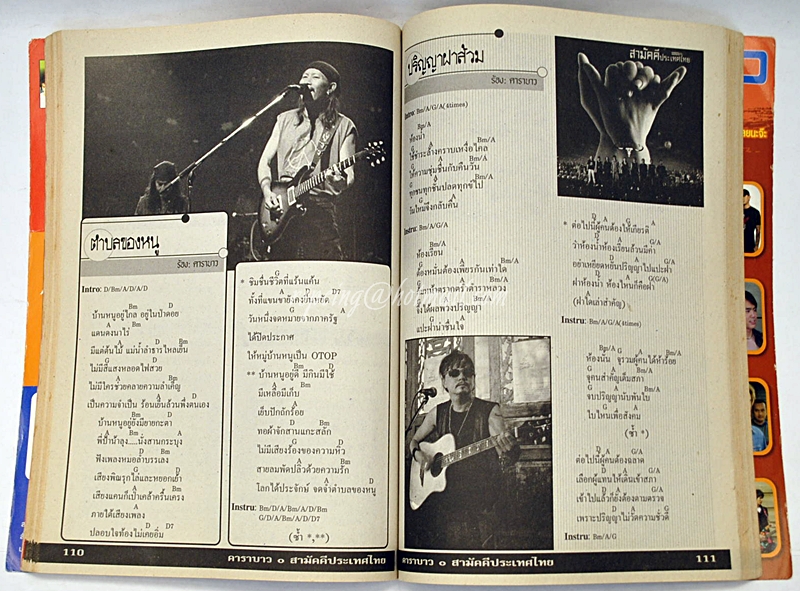 ตำบลของหนู
ร้อง: คาราบาว
Intro: D/Bm/A/D/A/D
Bm D
บ้านหนูอยู่ไกล อยู่ในป่าดอย
A Bm
แดนดงนาไร่
Bm D
มีแต่ต้นไม้ แม่น้ำลำธารไหลเย็น
G
ไม่มีสีแสงหลอดไฟสวย
A Bm
ไม่มีใครช่วยคลายความลำเค็ญ
A Bm
เป็นความจำเป็น ร้อนเย็นล้วนพึ่งตนเอง
Bm D
บ้านหนูอยู่ยังมียายกะตา
A Bm
พี่ป้าน้าลุง.....นั่งสานกระบุง
Bm D
ฟังเพลงหมอลำบรรเลง
G
เสียงพิณรุกไล่และหยอกเย้า
A Bm
เสียงแคนก็เป่าเคล้าครื้นเครง
A
ภายใต้เสียงเพลง
D D7
ปลอบใจท้องไม่เคยอิ่ม
G
* ชิมชื่นชีวิตที่แร้นแค้น
D D7
ทั้งที่แขนขายังคงมีเหลือ
G
วันหนึ่งจดหมายจากภาครัฐ
ได้ปิดประกาศ
A
ให้หมู่บ้านหนูเป็น OTOP
Bm
** บ้านหนูอยู่ดี มีกินมีใช้
D
มีเหลือมีเก็บ
A
เย็บปักถักร้อย
Bm
ทอผ้าจักสานแกะสลัก
G D
ไม่มีเสียงร้องของความหิว
A Bm
สายลมพัดปลิวด้วยความรัก
G A D
โลกได้ประจักษ์ จดจำตำบลของหนู
Instru: Bm/D/A/Bm/A/D/Bm
G/D/A/Bm/A/D/D7
(ซ้ำ *,**)
110
คาราบาว ๐ สามัคคีประเทศไทย
ปริญญาฝาส้วม
ร้อง: คาราบาว
Intro: Bm/A/G/A(4times)
Bm/A
ห้องน้ำ
G A Bm/A
ใช้ชำระล้างคราบเหงื่อไคล
G A Bm/A
ให้ความชุ่มชื่นกับคืนวัน
G A Bm/A
ทุกชนทุกชั้นปลดทุกข์ไป
G A
วันใหม่จึงกลับคืน
Instru: Bm/A/G/A
Bm/A
ห้องเรียน
Bm/A
ต้องหมั่นต้องเพียรกันเท่าใด
Bm/A
Bm/A
จึงได้ผลพวงปริญญา
G A
แปะฝาน่าชื่นใจ
สามัคคีประเทศไทย
D A G A
* ต่อไปนี้ผู้คนต้องให้เกียรติ
D A G A
ว่าห้องน้ำห้องเรียนล้วนมีค่า
D A G A
อย่าเหยียดหยันปริญญาไปแปะฝา
D A G A
ฝาห้องน้ำ ห้องไหนก็คือฝา
G A
(ฝาใดเล่าสำคัญ)
Instru: Bm/A/G/A(4times)
Bm/A
ห้องนั้น จุรวมผู้คนได้ห้าร้อย
G A Bm/A
จุคนสำคัญเต็มสภา
G A Bm/A
จบปริญญานับพันใบ
G A
ใบไหนเพื่อสังคม
(ซ้ำ *)
D A G/A
ต่อไปนี้ผู้คนต้องฉลาด
D A G/A
เลือกผู้แทนให้เดินเข้าสภา
D A G/A
เข้าไปแล้วก็ยังต้องตามตรวจ
D A G/A
เพราะปริญญาไม่วัดความชั่วดี
Instru: Bm/A/G
คาราบาว ๐ สามัคคีประเทศไทย
111